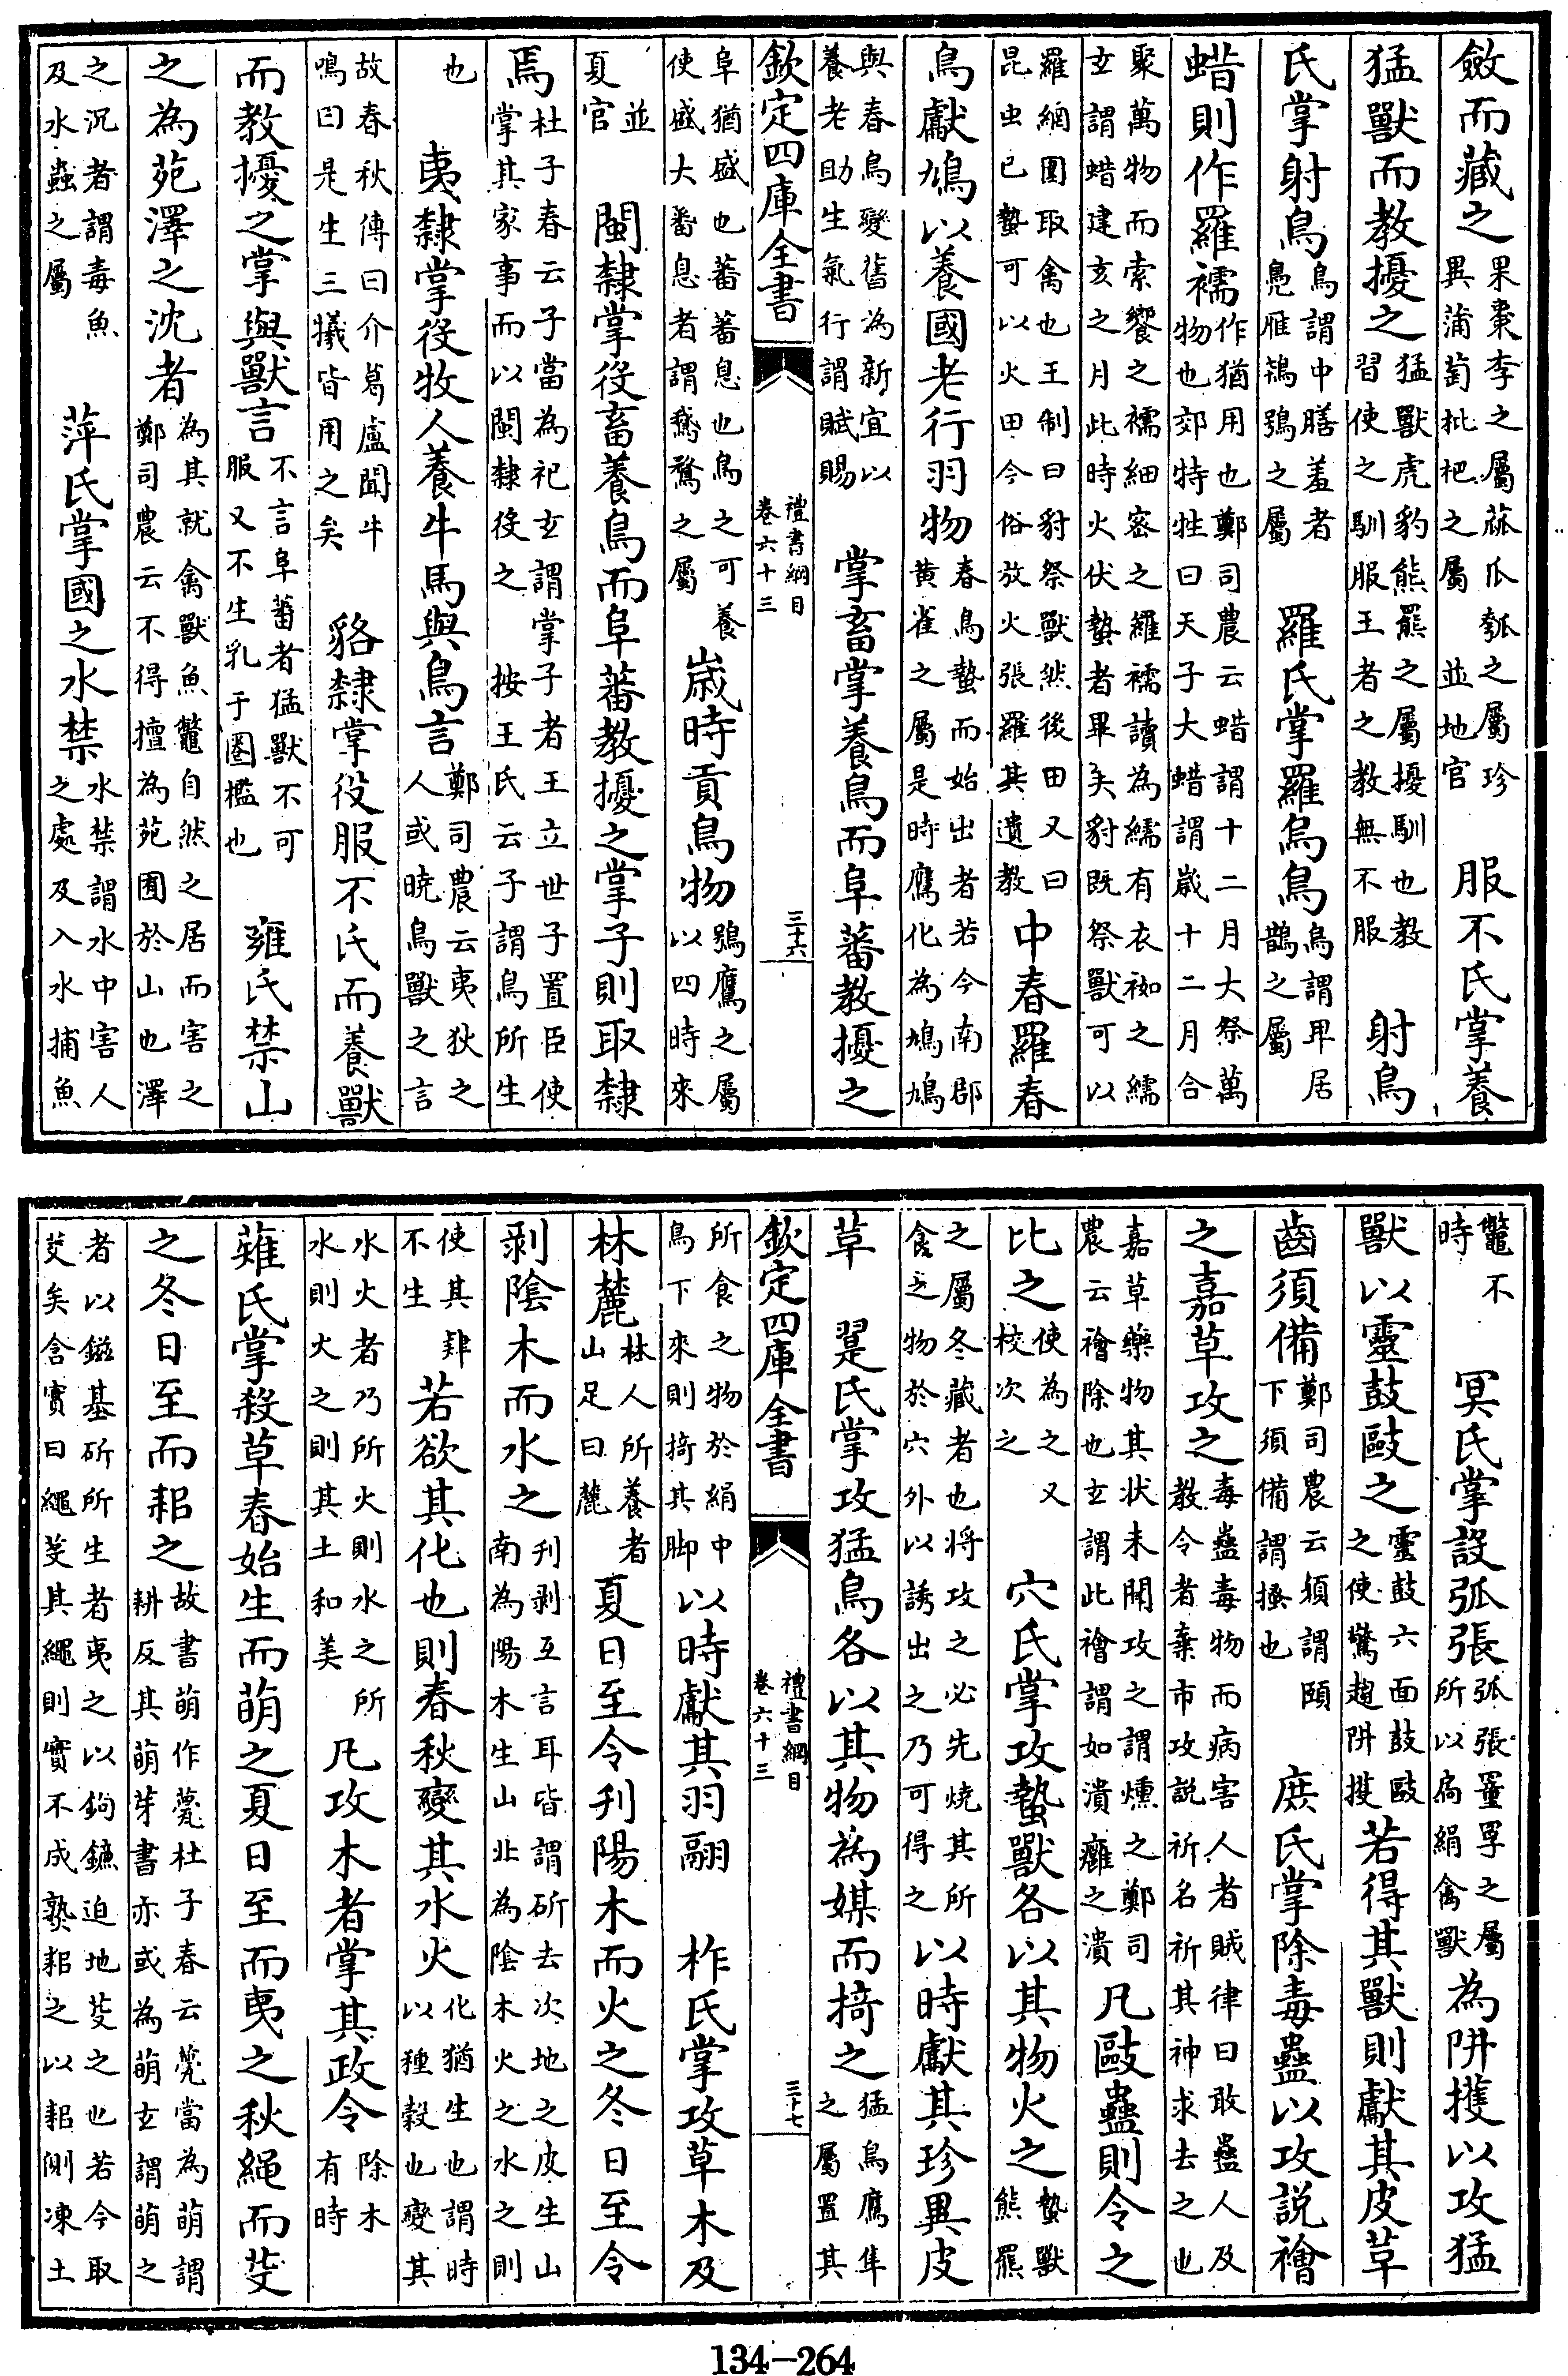 斂而藏之果棗李之屬蓏瓜瓠之屬珍異蒲萄枇杷之屬並地官服不氏掌養
猛獸而教擾之猛獸虎豹熊羆之屬擾馴也教習使之馴服王者之教無不服射鳥
氏掌射鳥鳥謂中膳羞者鳧雁鴇鴞之屬羅氏掌羅烏鳥烏謂卑居鵲之屬
蜡則作羅襦作猶用也鄭司農云蜡謂十二月大祭萬物也郊特牲曰天子大蜡謂歲十二月合
聚萬物而索饗之襦細密之羅襦讀為繻有衣袽之繻玄謂蜡建亥之月此時火伏蟄者畢矣豺既祭獸可以
羅網圍取禽也王制曰豺祭獸然後田又曰昆虫已蟄可以火田今俗放火張羅其遺教中春羅春
鳥獻鳩以養國老行羽物春鳥蟄而始出者若今南郡黃雀之屬是時鷹化為鳩鳩
與春鳥變舊為新宜以養老助生氣行謂賦賜掌畜掌養鳥而阜蕃教擾之
欽定四庫全書 禮書綱目 卷六十三 三十六
阜猶盛也蕃蕃息也鳥之可養使盛大蕃息者謂鵞鶩之屬歲時貢鳥物鴞鷹之屬以四時來
並夏官閩隸掌役畜養鳥而阜蕃教擾之掌子則取隸
焉杜子春云子當為祀玄謂掌子者王立世子置臣使掌其家事而以閩隸役之按王氏云子謂鳥所生
也夷隸掌役牧人養牛馬與鳥言鄭司農云夷狄之人或曉鳥獸之言
故春秋傳曰介葛盧聞牛鳴曰是生三犧皆用之矣貉隸掌役服不氏而養獸
而教擾之掌與獸言不言阜蕃者猛獸不可服又不生乳于圈檻也雍氏禁山
之為苑澤之沈者為其就禽獸魚鼈自然之居而害之鄭司農云不得擅為苑囿於山也澤
之沉者謂毒魚及水蟲之屬萍氏掌國之水禁水禁謂水中害人之處及入水捕魚
鼈不時冥氏掌設弧張弧張罿罦之屬所以扃絹禽獸為阱擭以攻猛
獸以靈鼓敺之靈鼓六面鼓敺之使驚趨阱擭若得其獸則獻其皮草
齒須備鄭司農云須謂頤下須備謂搔也庶氏掌除毒蠱以攻説禬
之嘉草攻之毒蠱毒物而病害人者賊律曰敢蠱人及教令者棄市攻説祈名祈其神求去之也
嘉草藥物其狀未聞攻之謂燻之鄭司農云禬除也玄謂此禬謂如潰癰之潰凡敺蠱則令之
比之使為之又校次之穴氏掌攻蟄獸各以其物火之蟄獸熊羆
之屬冬藏者也將攻之必先燒其所食之物於穴外以誘出之乃可得之以時獻其珍異皮
草翨氏掌攻猛鳥各以其物為媒而掎之猛鳥鷹隼之屬置其
欽定四庫全書 禮書綱目 卷六十三 三十七
所食之物於絹中鳥下來則掎其脚以時獻其羽翮柞氏掌攻草木及
林麓林人所養者山足曰麓夏日至令刋陽木而火之冬日至令
剥陰木而水之刋剥互言耳皆謂斫去次地之皮生山南為陽木生山北為陰木火之水之則
使其肄不生若欲其化也則春秋變其水火化猶生也謂時以種穀也變其
水火者乃所火則水之所水則火之則其土和美凡攻木者掌其政令除木有時
薙氏掌殺草春始生而萌之夏日至而夷之秋繩而芟
之冬日至而耜之故書萌作薨杜子春云薨當為萌謂耕反其萌芽書亦或為萌玄謂萌之
者以鎡基斫所生者夷之以鉤鐮迫地芟之也若今取茭矣含實曰繩芟其繩則實不成熟耜之以耜側凍土
134-264